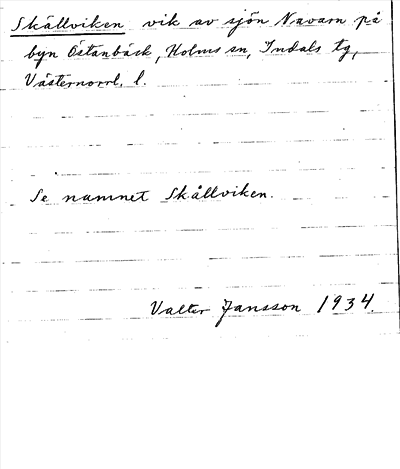 Skällviken vik av sjön Navarn på
byn Östanbäck, Holms sn, Indals tg,
Västernorrl. l.
Se namnet Skållviken.
Valter Jansson 1934.